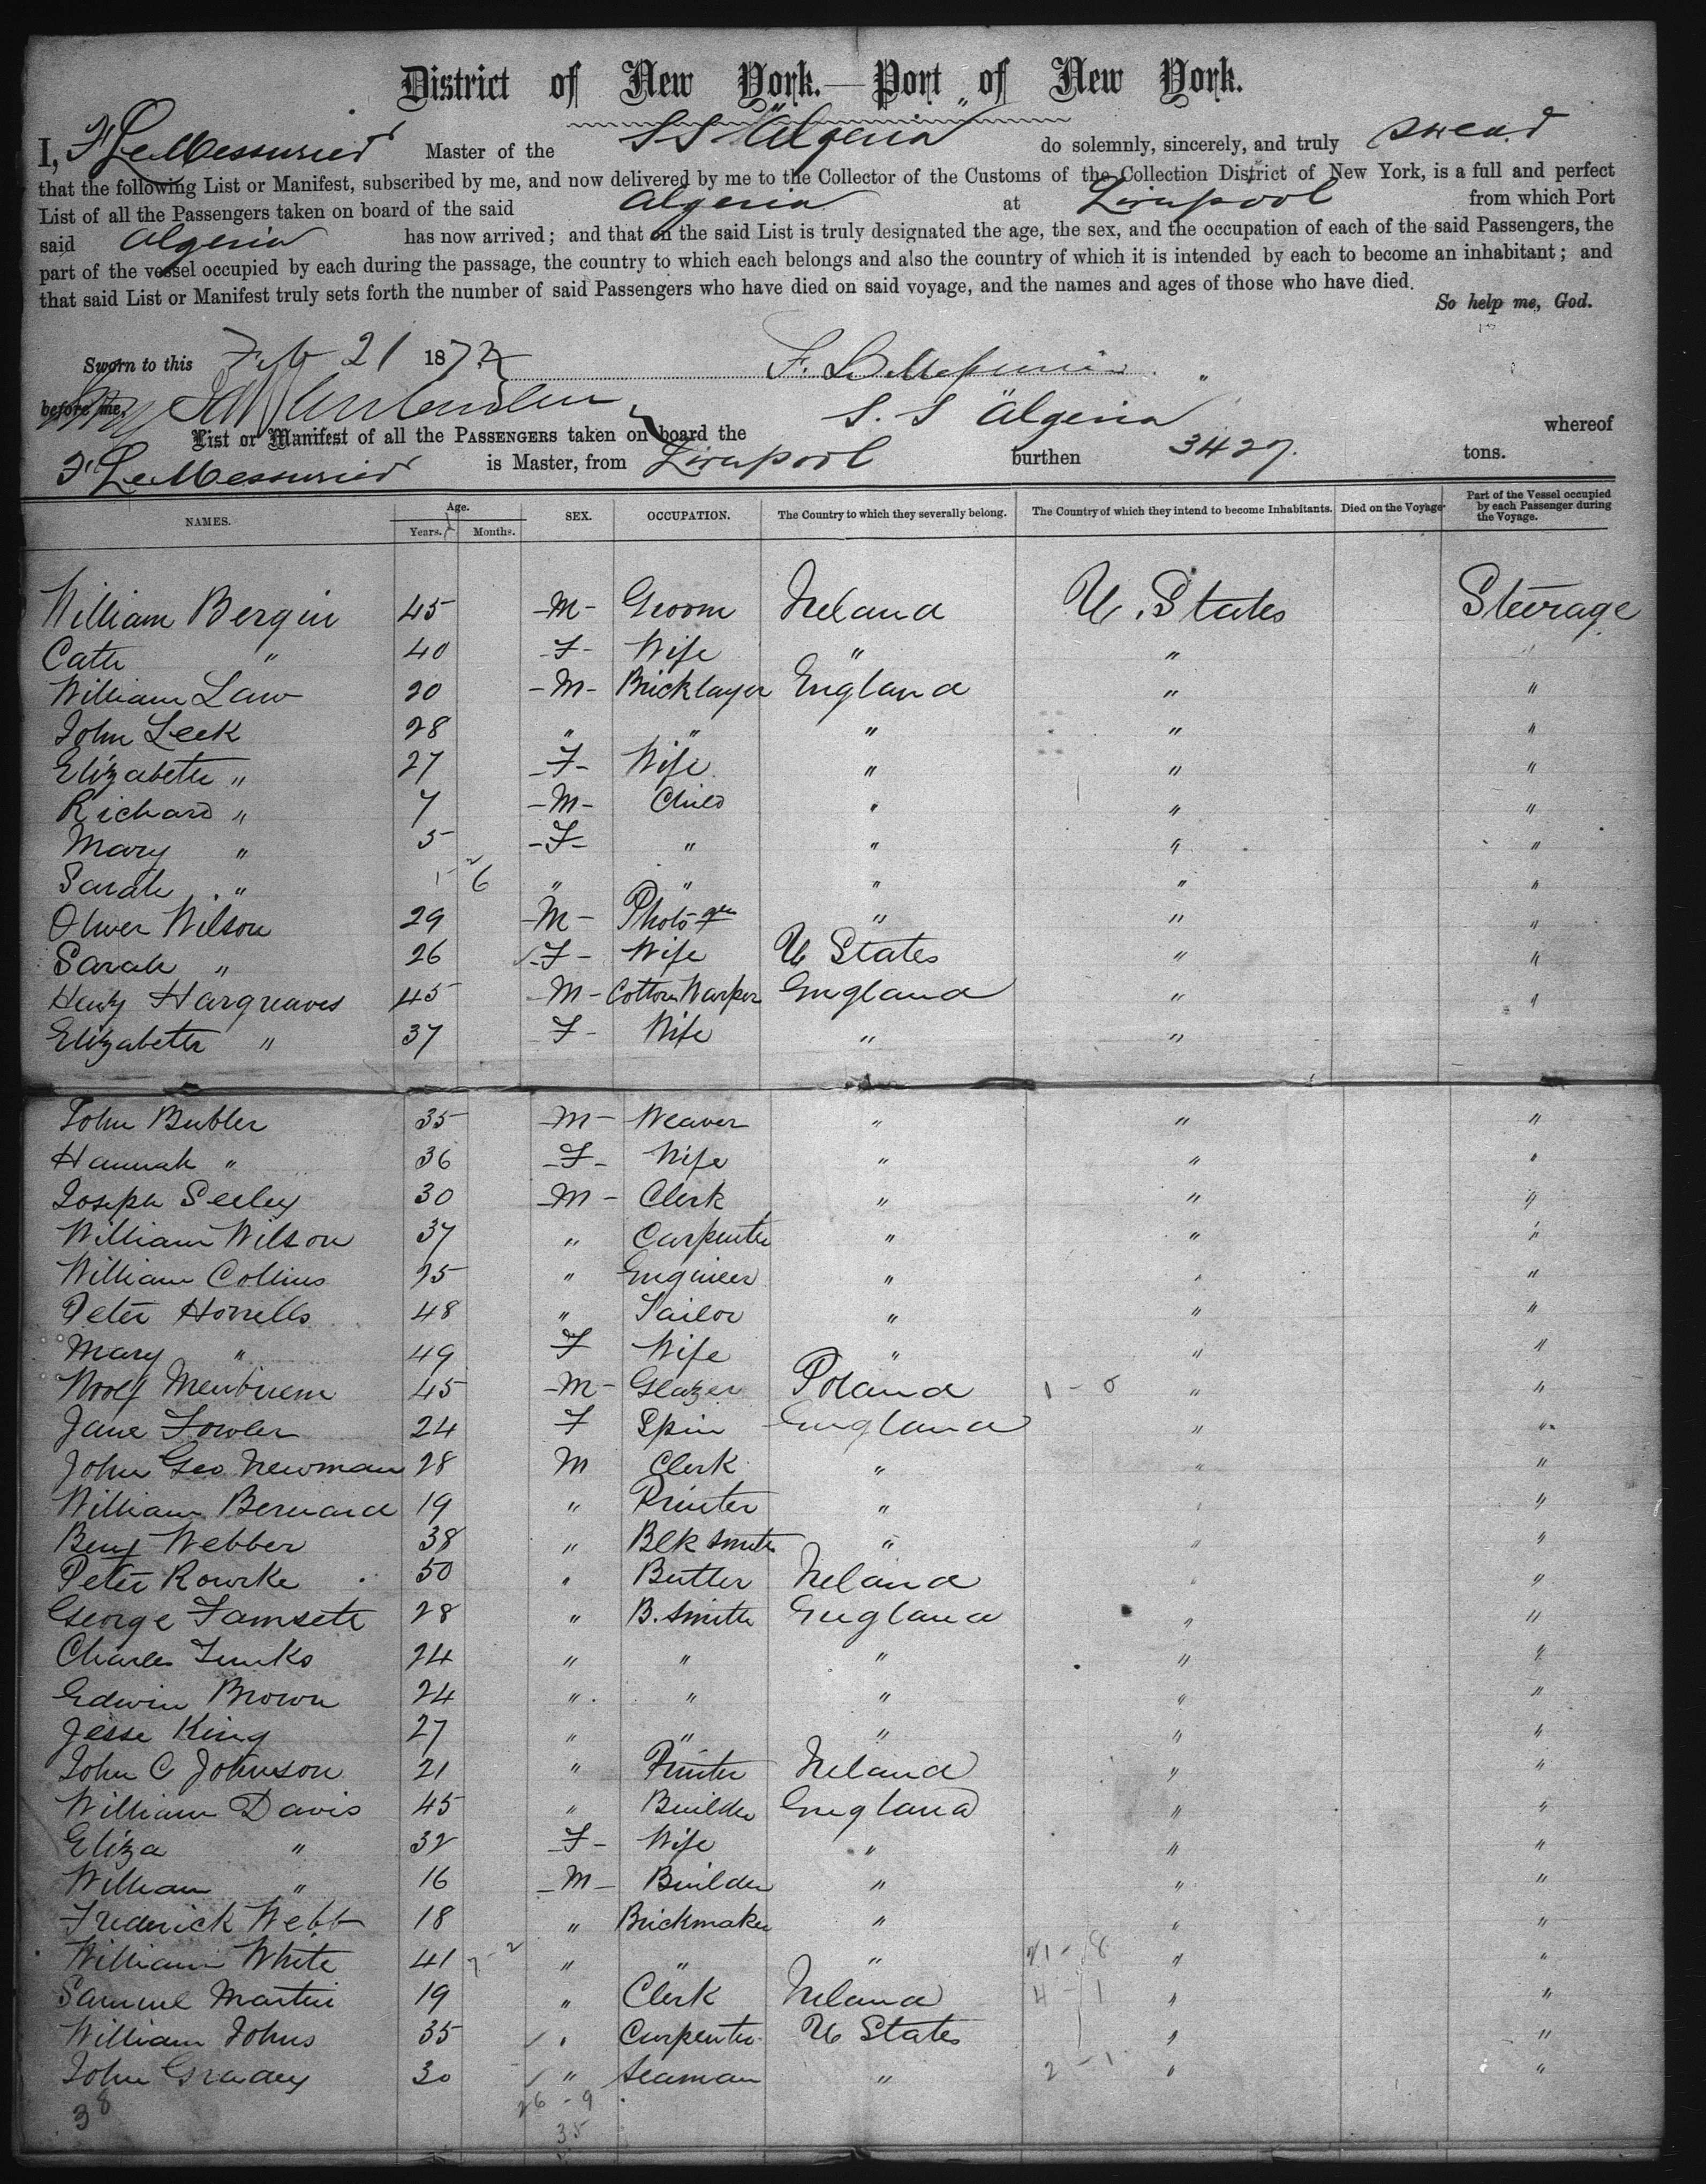 District of New York.—Port of New York.
I, F LeMessurier Master of the SS "Algeria" do solemnly, sincerely, and truly swear
that the following List or Manifest, subscribed by me, and now delivered by me to the Collector of the Customs of the Collection District of New York, is a full and perfect
List of all the Passengers taken on board of the said Algeria at Liverpool from which Port
said Algeria has now arrived; and that on the said List is truly designated the age, the sex, and the occupation of each of the said Passengers, the
part of the vessel occupied by each during the passage, the country to which each belongs and also the country of which it is intended by each to become an inhabitant; and
that said List or Manifest truly sets forth the number of said Passengers who have died on said voyage, and the names and ages of those who have died.
So help me, God.
Sworn to this Feb 21 187 F. LeMessurier
before me, S. S "Algeria"
List or Manifest of all the PASSENGERS taken on board the whereof
F LeMessurier is Master, from Liverpool burthen 3427. tons.
NAMES. Age. Years. Months. SEX. OCCUPATION. The Country to which they severally belong. The Country of which they intend to become Inhabitants. Died on the Voyage Part of the Vessel occupied by each Passenger during the Voyage.
William Bergin 45 -M- Groom Ireland U. States Steerage
Cath " 40 F- Wife " " "
William Law 20 -M- Bricklayer England " "
John Leek 28 " " " " "
Elizabeth " 27 -F- Wife " " "
Richard " 7 -M- Child " " "
Mary " 5 -F- " " " "
Sarah " 6 " " " " "
Oliver Wilson 29 -M- Photo " " "
Sarah " 26 F- Wife U States " "
Heny Hargreaves 45 M- Cotton Warper England " "
Elizabeth " 37 F- Wife " " "
John Butler 35 M- Weaver " " "
Hannah " 36 -F- Wife " " "
Joseph Seeley 30 -M- Clerk " " "
William Wilson 37 " Carpenter " " "
William Collins 25 " Engineer " " "
Peter Horrells 48 " Tailor " " "
Mary " 49 F Wife " " "
Woolf 45 -M- Glazer Poland 1-0 " "
Jane Fowler 24 F Spin England " "
John Geo Newman 28 M Clerk " " "
William Bernard 19 " Printer " " "
Benj Webber 38 " Blk Smith " " "
Peter Rourke 50 " Butler Ireland " "
George Famsett 28 " B. Smith England " "
Charles 24 " " " " "
Edwin Brown 24 " " " " "
Jesse King 27 " " " " "
John C Johnson 21 " Printer Ireland " "
William Davis 45 " Builder England " "
Eliza " 32 F- Wife " " "
William " 16 -M- Builder " " "
Frederick Webb 18 " Brickmaker " " "
William White 41 7-2 " " " 21-8 " "
Samuel Martin 19 " Clerk Ireland 4-1 " "
William Johns 35 " Carpenter U States " "
John Gradey 30 " Seaman " 2-1 " "
38 26-9
35